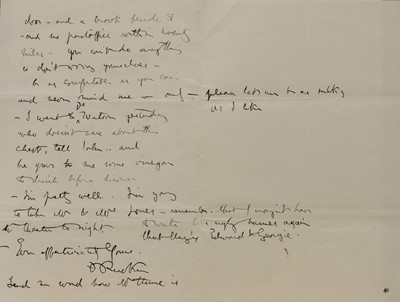 door - and a brook beside it
- and no postoffice within twenty
miles - you can't do anything
so don't worry yourselves -
be as comfortable as you can
and never mind me - only - please let me be as sulky
as I like
- I went to Dr Watson yesterday
who doesn't care about this
chest, tell John .. and
he gave to me some
to drink before dinner
- I'm pretty well. I'm going
to take Mr & Mrs Jones - remember that I mayn't have
to theatre to night
to write ugly names again
that they're Edward & Georgie.
- Ever affectionately Yours
J Ruskin
Send me word how time is